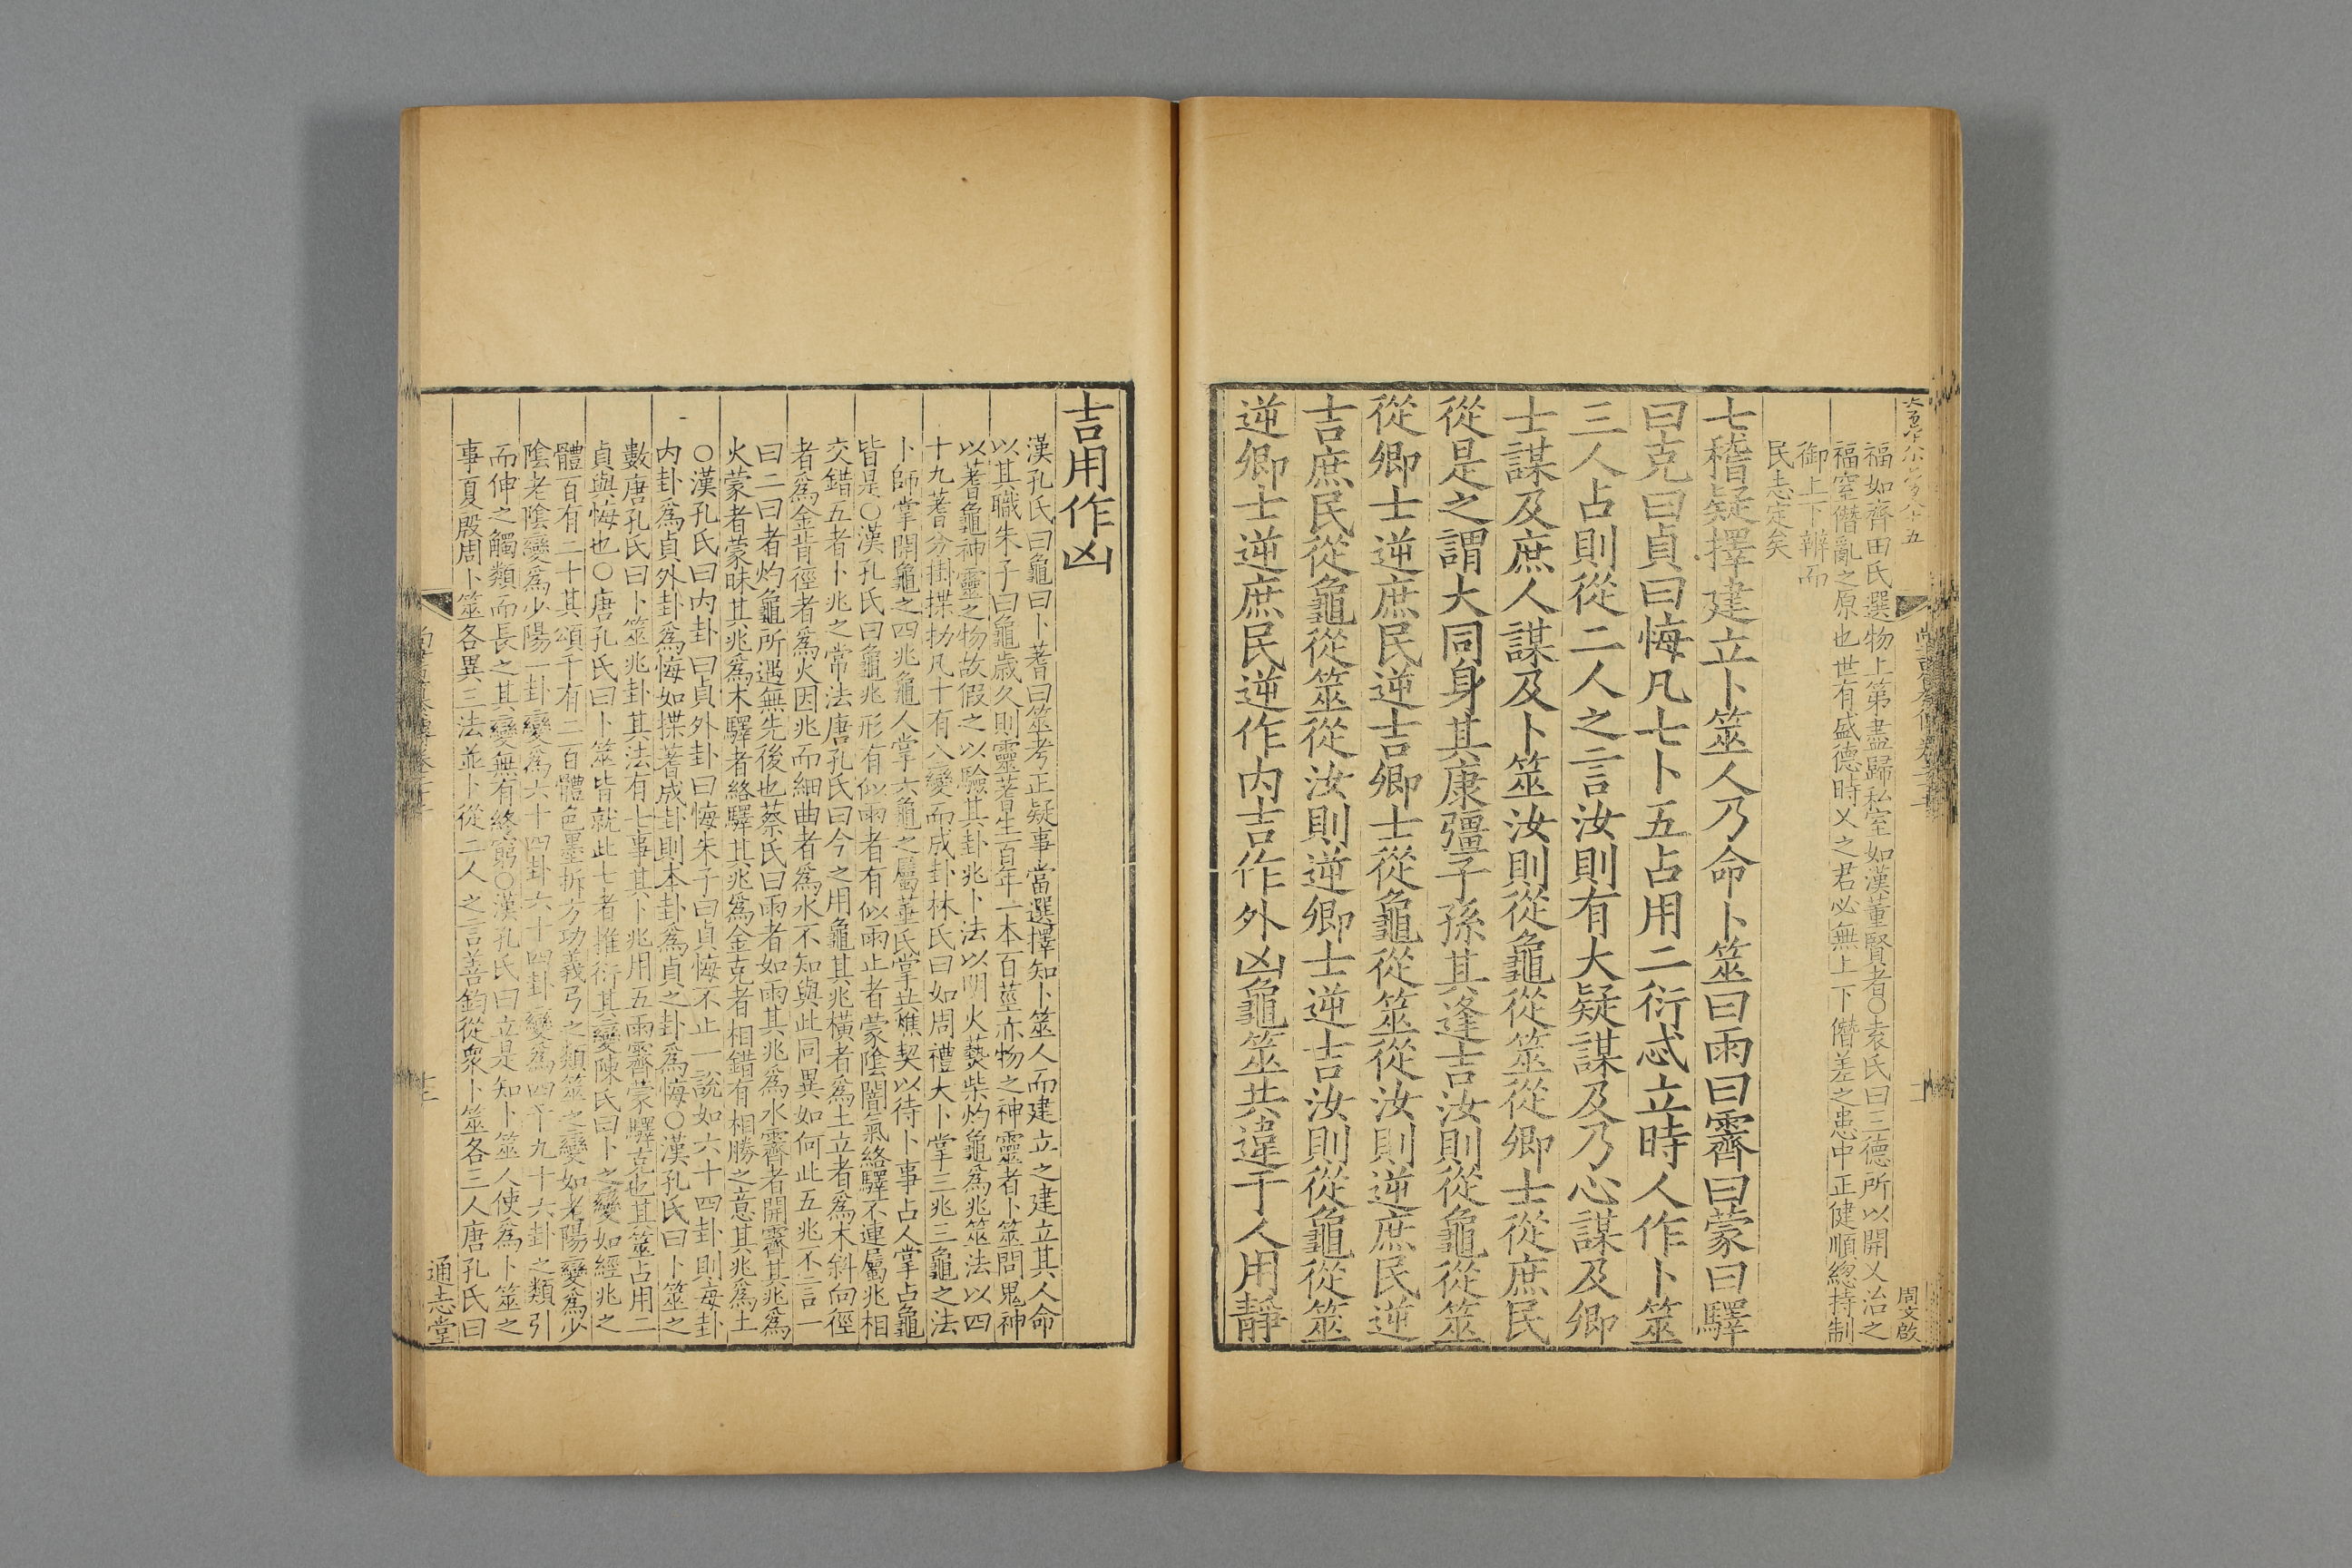 福如齊田氏選物上第盡歸私室如漢董賢者○袁氏曰三德所以開乂治之
福窒僭亂之原也世有盛德時乂之君必無上下僭差之患中正健順總持制
御上下辨而
民志定矣
七稽疑擇建立卜筮人乃命卜筮曰雨曰霽曰蒙曰驛
曰克曰貞曰悔凡七卜五占用二衍忒立時人作卜筮
三人占則從二人之言汝則有大疑謀及乃心謀及卿
士謀及庶人謀及卜筮汝則從龜從筮從卿士從庶民
從是之謂大同身其康彊子孫其逢吉汝則從龜從筮
從卿士逆庶民逆吉卿士從龜從筮從汝則逆庶民逆
吉庶民從龜從筮從汝則逆卿士逆吉汝則從龜從筮
逆卿士逆庶民逆作内吉作外凶龜筮共違于人用靜
周文啟
吉用作凶
漢孔氏曰龜曰卜蓍曰筮考正疑事當選擇知卜筮人而建立之建立其人命
以其職朱子曰龜歲久則靈蓍生百年一本百莖亦物之神靈者卜筮問鬼神
以蓍龜神靈之物故假之以驗其卦兆卜法以明火爇柴灼龜爲兆筮法以四
十九蓍分掛揲扐凡十有八變而成卦林氏曰如周禮大卜掌三兆三龜之法
卜師掌開龜之四兆龜人掌六龜之屬菙氏掌共燋契以待卜事占人掌占龜
皆是○漢孔氏曰龜兆形有似雨者有似雨止者蒙陰闇氣絡驛不連屬兆相
交錯五者卜兆之常法唐孔氏曰今之用龜其兆橫者爲土立者爲木斜向徑
者爲金背徑者爲火因兆而細曲者爲水不知與此同異如何此五兆不言一
曰二曰者灼龜所遇無先後也蔡氏曰雨者如雨其兆爲水霽者開霽其兆爲
火蒙者蒙昧其兆爲木驛者絡驛其兆爲金克者相錯有相勝之意其兆爲土
○漢孔氏曰内卦曰貞外卦曰悔朱子曰貞悔不止一說如六十四卦則每卦
内卦爲貞外卦爲悔如揲蓍成卦則本卦爲貞之卦爲悔○漢孔氏曰卜筮之
數唐孔氏曰卜筮兆卦其法有七事其卜兆用五雨霽蒙驛克也其筮占用二
貞與悔也○唐孔氏曰卜筮皆就此七者推衍其變陳氏曰卜之變如經兆之
體百有二十其頌千有二百體色墨拆方功義弓之類筮之變如老陽變爲少
陰老陰變爲少陽一卦變爲六十四卦六十四卦變爲四千九十六卦之類引
而伸之觸類而長之其變無有終窮○漢孔氏曰立是知卜筮人使爲卜筮之
事夏殷周卜筮各異三法並卜從二人之言善鈞從衆卜筮各三人唐孔氏曰
通志堂